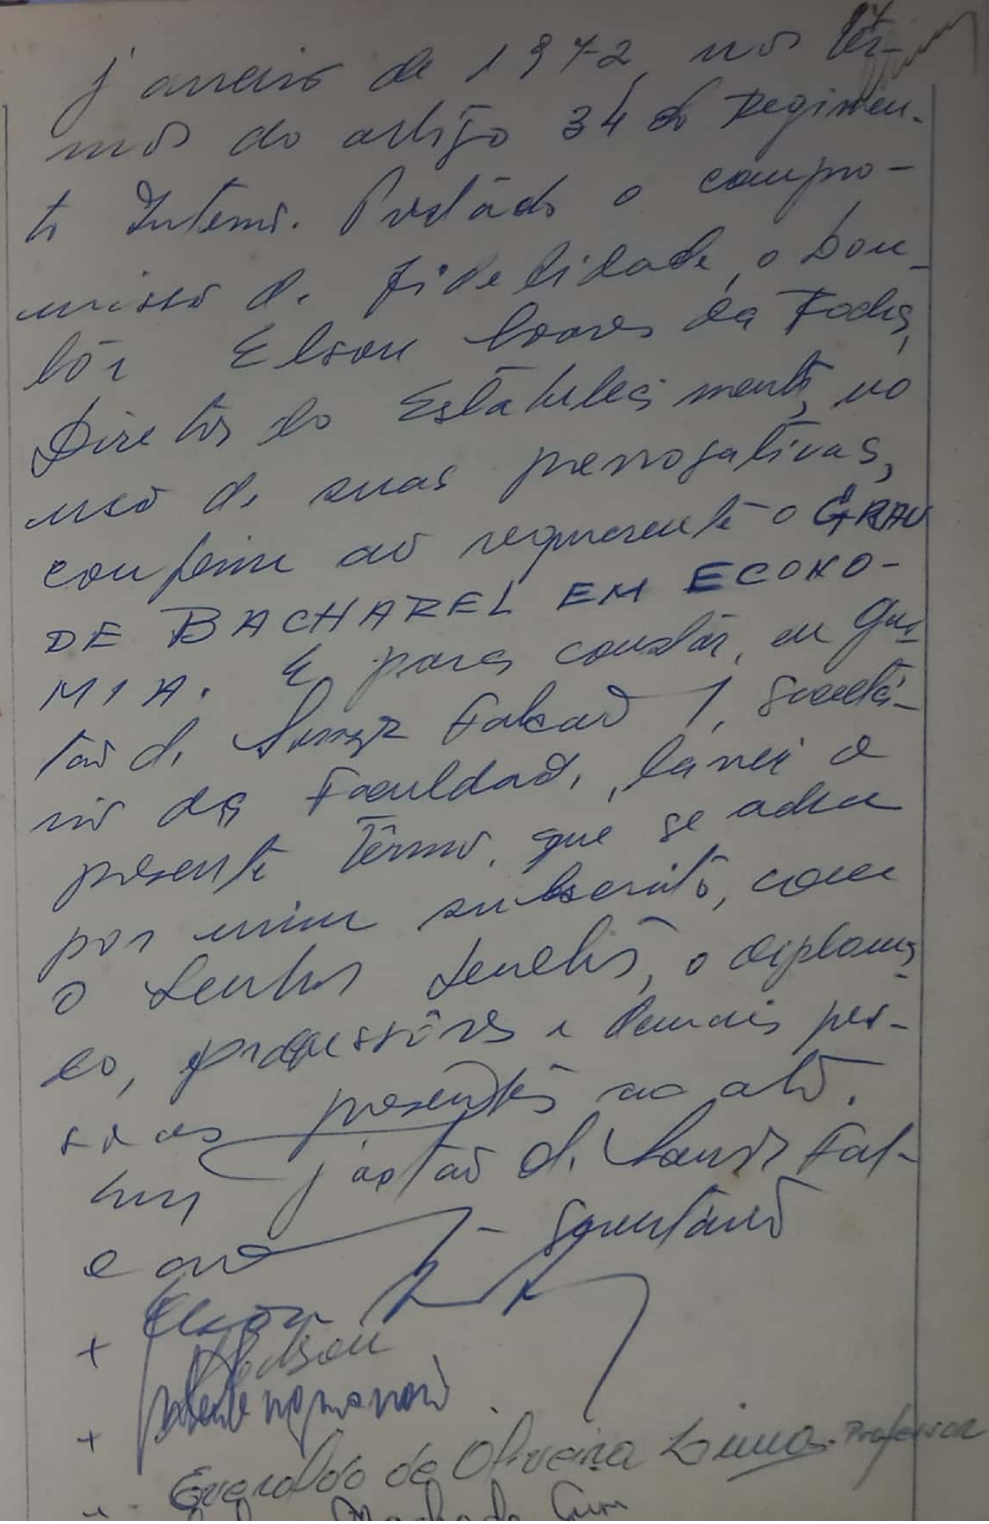 janeiro de 1972, nos têr-
mos do artigo 34 do Regimen-
to Interno. Prestado o compro-
misso de fidelidade, o Dou-
tôr Elson Soares da Rocha,
Diretor do Estabelecimento, no
uso de suas prerrogativas,
conferiu ao requerente o GRAU
DE BACHAREL EM ECONO-
MIA. E para constar, eu Gas-
tão de Souza Falcão, secretá-
rio da Faculdade, lavrei o
presente têrmo, que se acha
por mim subscrito, com
o Senhor Diretor, o diploman-
do, professôres e demais pes-
soas presentes ao ato.
Gastão de Souza Fal-
cão - Secretário
+ Elson
+
Everaldo de Oliveira Lima. Professor
Machado